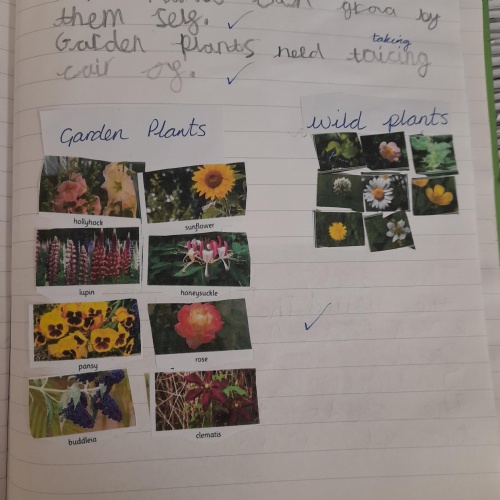 grow by
them self.
Garden plants need taicing
taking
cair of.
Garden Plants
wild plants
hollyhock
sunflower
lupin
honeysuckle
pansy
rose
buddleia
clematis